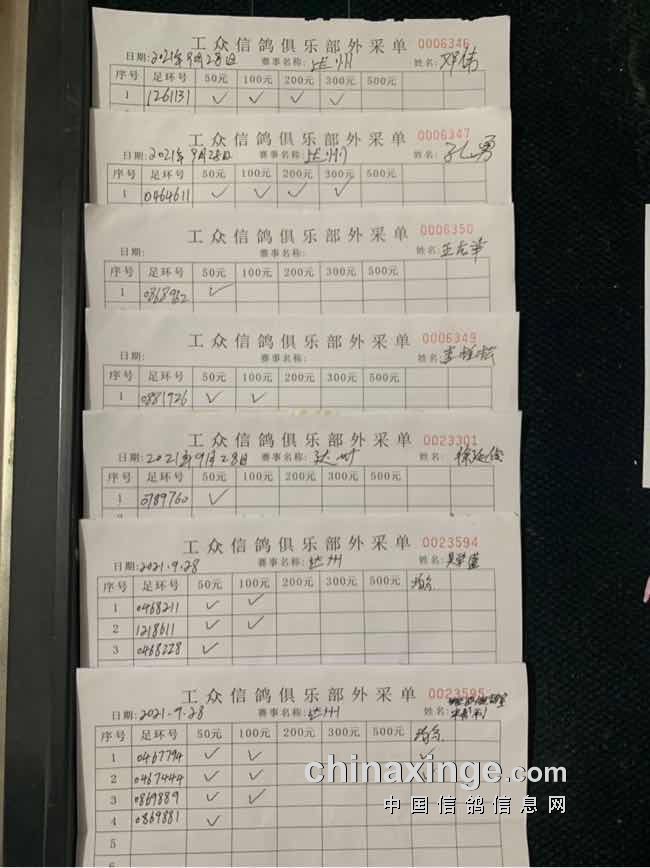 工众信鸽俱乐部外采单 0006346
日期:2021年9月28日 赛事名称:达州 姓名:邓伟
序号 足环号 50元 100元 200元 300元 500元
1 1261131 ✓ ✓ ✓ ✓
工众信鸽俱乐部外采单 0006347
日期:2021年9月28日 赛事名称:达州 姓名:孔勇
序号 足环号 50元 100元 200元 300元 500元
1 0464611 ✓ ✓ ✓ ✓
工众信鸽俱乐部外采单 0006350
日期: 赛事名称: 姓名:
序号 足环号 50元 100元 200元 300元 500元
1 0868982 ✓
工众信鸽俱乐部外采单 0006349
日期: 赛事名称: 姓名:李
序号 足环号 50元 100元 200元 300元 500元
1 0881926 ✓ ✓
工众信鸽俱乐部外采单 0023301
日期:2021年9月28日 赛事名称:达州 姓名:徐
序号 足环号 50元 100元 200元 300元 500元
1 0789760 ✓
工众信鸽俱乐部外采单 0023594
日期:2021.9.28 赛事名称:达州 姓名:吴
序号 足环号 50元 100元 200元 300元 500元
1 0468211 ✓ ✓
2 1218611 ✓ ✓
3 0468228 ✓
工众信鸽俱乐部外采单 0023595
日期:2021.9.28 赛事名称:达州 姓名:
序号 足环号 50元 100元 200元 300元 500元
1 0467794 ✓ ✓ ✓
2 0467444 ✓ ✓
3 0869889 ✓ ✓
4 0869881 ✓
5
6
chinaxinge.com
中国信鸽信息网